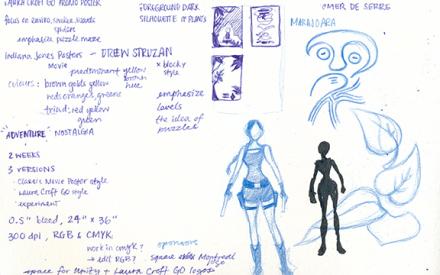 LAURA CROFT GO PROMO POSTER
focus on
emphasize puzzle maze
Indiana Jones Posters - DREW STRUZAN
movie
predominant yellow
brown
hue
x blocky
style
colours: brown golds yellow
reds oranges, greens
triad: red yellow
green
"ADVENTURE" NOSTALGIA
2 WEEKS
3 VERSIONS
- Classic Movie Poster style
- Laura Croft GO style
- experiment
0.5" bleed, 24" x 36"
300 dpi, RGB & CMYK
work in cmyk?
→ edit RGB?
space for Unity + Laura Croft GO logos
FOREGROUND DARK
SILHOUETTE of PLANTS
emphasize
levels
the idea of
puzzles
sponsors
square Montreal
OMER DE SERRE